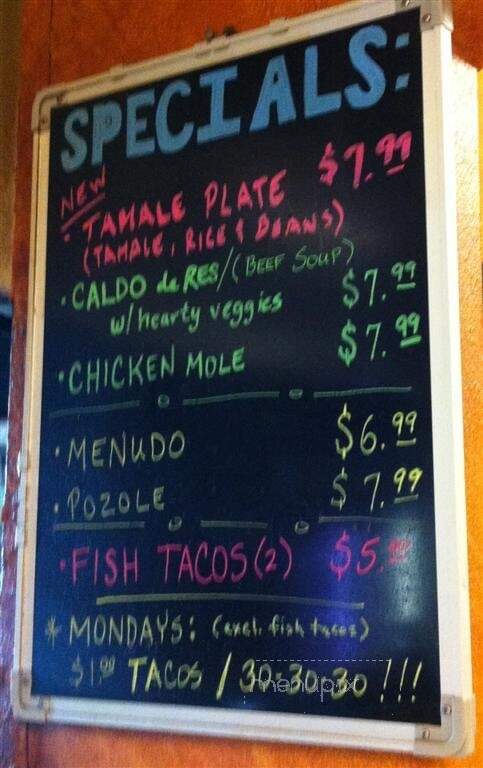 SPECIALS:
NEW
· TAMALE PLATE $7.99
(TAMALE, RICE & BEANS)
· CALDO de RES/(BEEF SOUP) $7.99
w/hearty veggies
· CHICKEN MOLE $7.99
· MENUDO $6.99
· POZOLE $7.99
· FISH TACOS (2) $5.
* MONDAYS: (excl. fish tacos)
$1.00 TACOS / 30:30:30 !!!